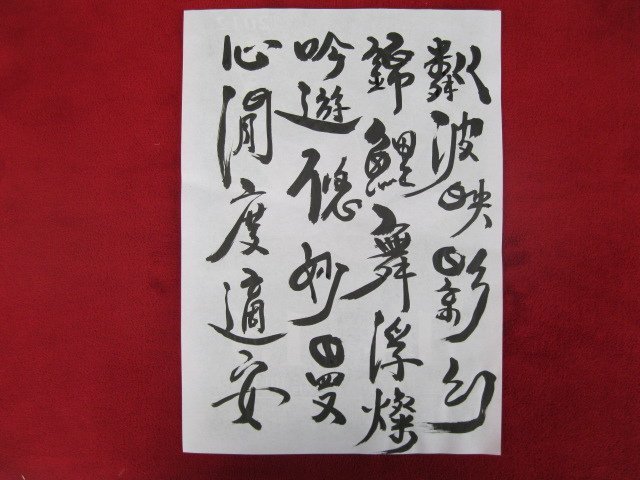 粼波映影幻
錦鯉舞浮燦
吟遊隱妙曼
心澗度適安